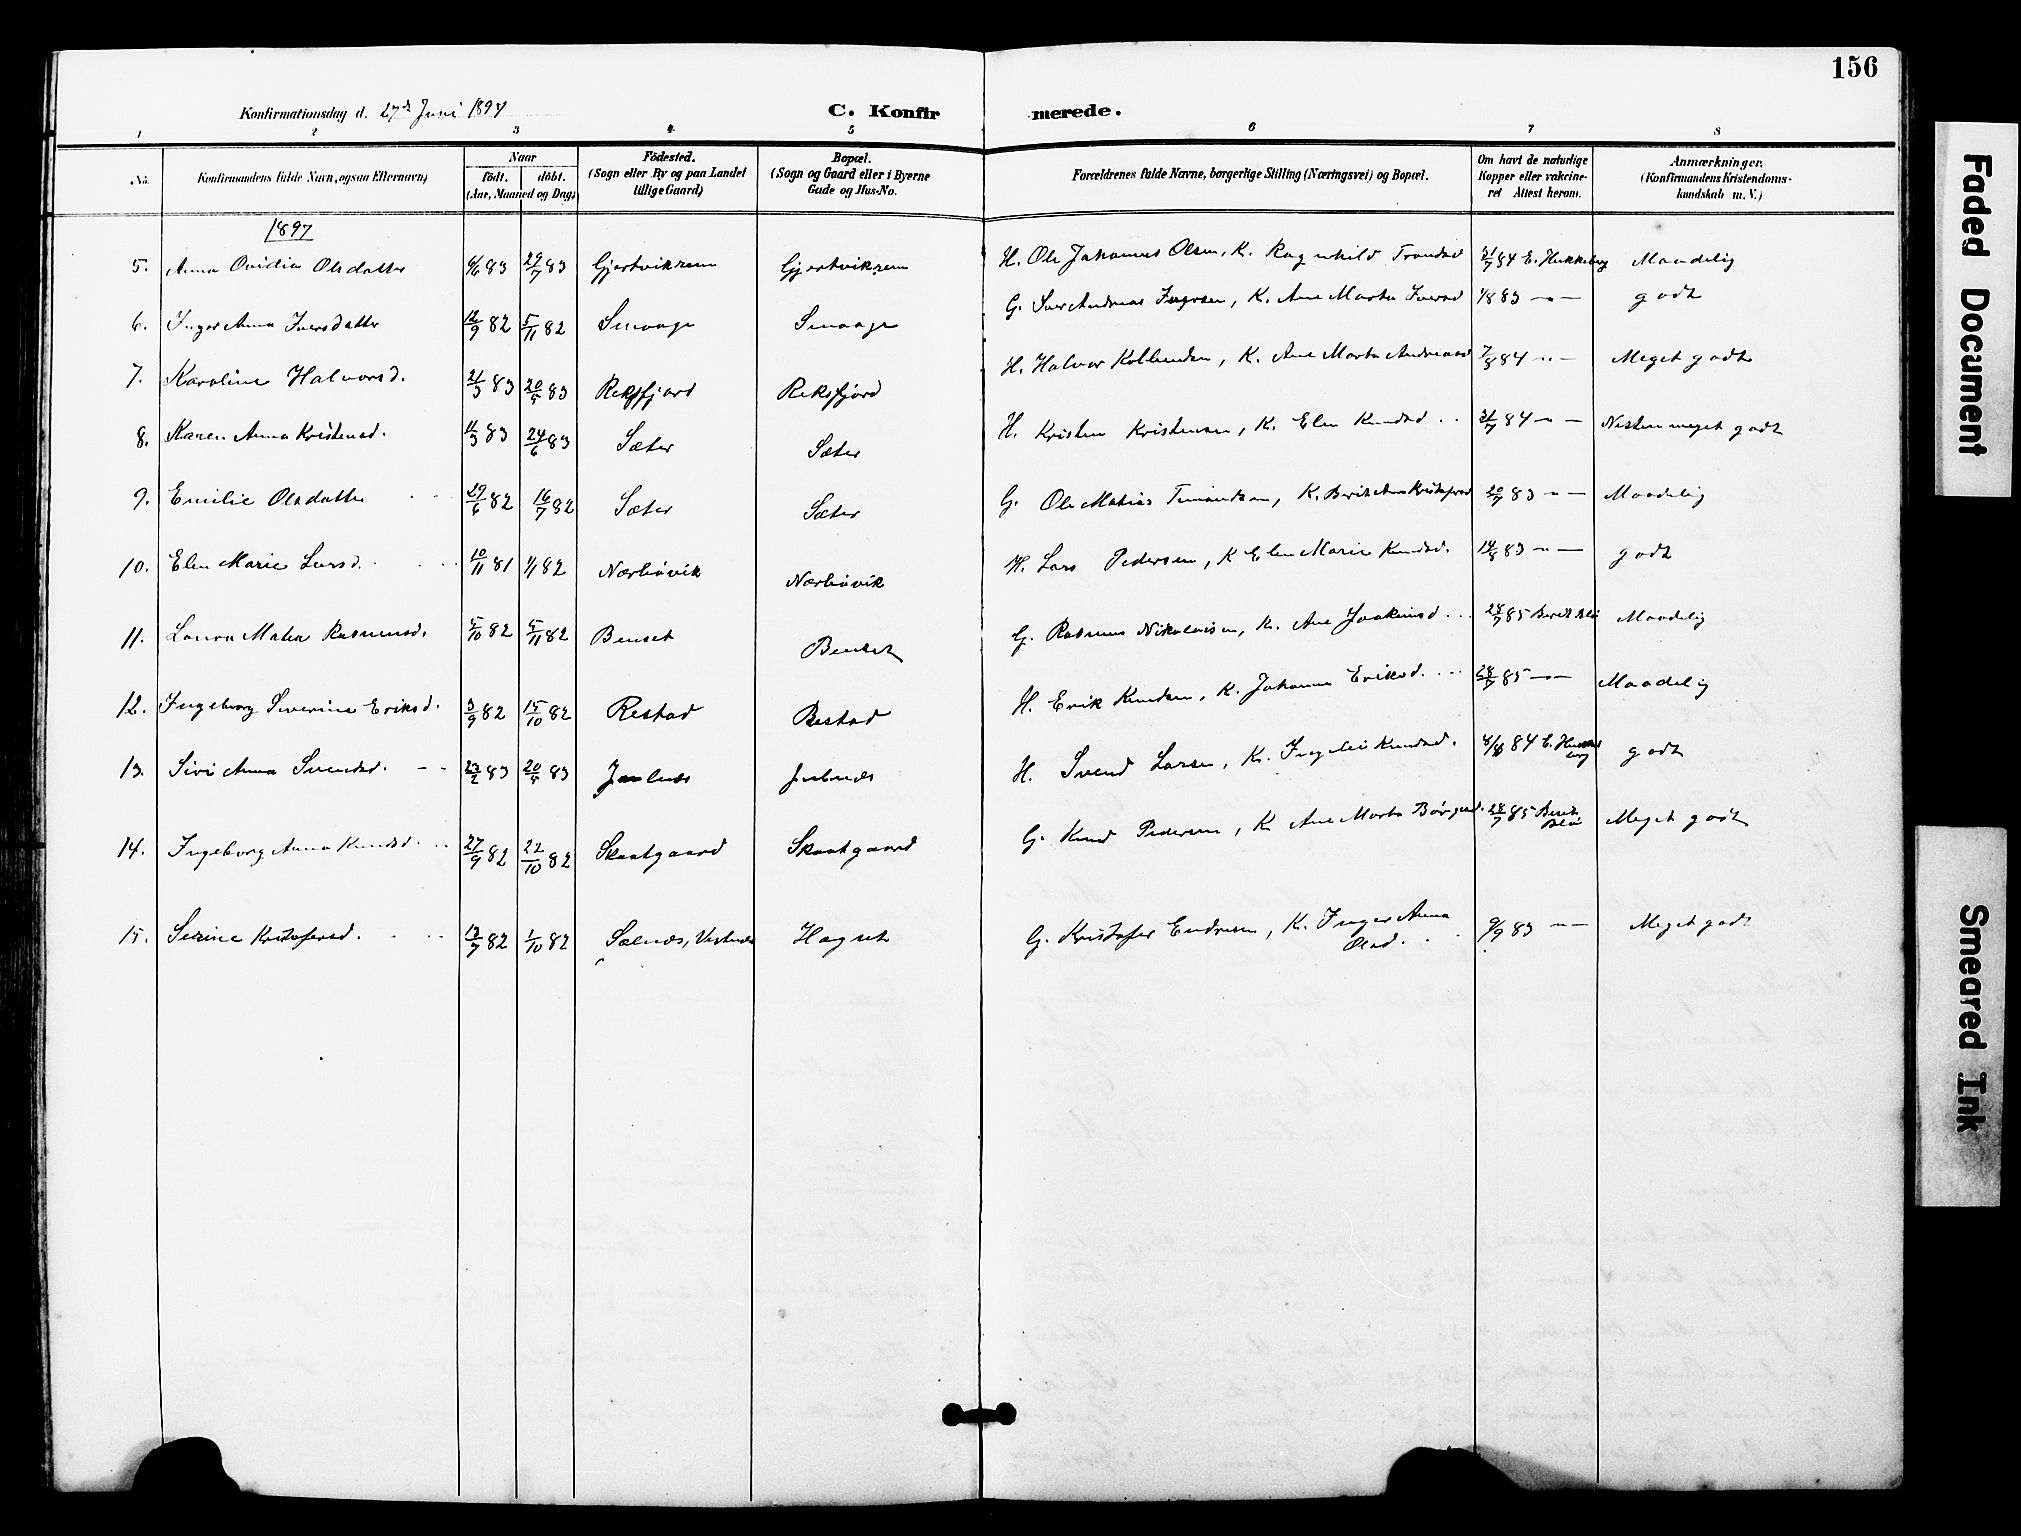 156
Konfirmationsdag d. 27de Juni 1897
C. Konfirmerede.
1 2 3 4 5 6 7 8
No. Konfirmandens fulde Navn, ogsaa Efternavn) Naar födt. döbt. (Aar, Maaned og Dag) Födested. (Sogn eller By og paa Landet tillige Gaard) Bopæl. (Sogn og Gaard eller i Byerne Gade og Hus-No. Forældrenes fulde Navne, borgerlige Stilling (Næringsvei) og Bopæl. Om havt de naturlige Kopper eller vakcineret Attest herom. Anmærkninger. (Konfirmandens Kristendomskundskab m. V.)
1897
5. Anna Ovidia Olsdatter 6/6 83 29/7 83 Gjertvikrem Gjertvikrem H. Ole Johannes Olsen, K. Ragnhild Trondsd 31/7 84 E. Hukkeberg Maadelig
6. Inger Anna Iversdatter 12/9 82 5/11 82 Smaage Smaage G. Iver Andreas Ingersen, K. Ane Marta Iversd 1/8 83 -"- godt
7. Karoline Halvorsd. 21/3 83 20/5 83 Reksfjord Reksfjord H. Halvor Kolbensen, K. Ane Marta Andreasd 7/8 84 -"- Meget godt
8. Karen Anna Kristensd. 11/3 83 24/6 83 Sæter Sæter H. Kristen Kristensen, K. Elen Knudsd .. 31/7 84 -"- Nesten meget godt
9. Emilie Olsdatter 29/6 82 16/7 82 Sæter Sæter G. Ole Matias Timandsen, K. Berit Ane Kristofersd 20/7 83 -"- Maadelig
10. Elen Marie Larsd. 10/11 81 1/1 82 Nærbövik Nærbövik H. Lars Pedersen, K Elen Marie Knudsd. 14/8 83 -"- godt
11. Laura Matea Rasmusd. 5/10 82 5/11 82 Benset Benset G. Rasmus Nikolaisen, K. Ane Joakimsd ... 28/7 85 Berit Blö Maadelig
12. Ingeborg Severine Eriksd. 3/9 82 15/10 82 Restad Restad H. Erik Knudsen, K. Johanna Eriksd. ... 28/7 85 -"- Maadelig
13. Sivi Anna Svendsd. 23/2 83 20/5 83 Julnæs Julnæs H. Svend Larsen, K. Ingelei Knudsd. 8/8 84 E. Hukkeberg godt
14. Ingeborg Anna Knudsd. 27/9 82 22/10 82 Skaatgaard Skaatgaard G. Knud Pedersen, K. Ane Marta Börgesd. 28/7 85 Berit Blö Meget godt
15. Serine Kristofersd. 13/7 82 1/10 82 Solnæs, Vestnæs Hagset G. Kristofer Endresen, K. Inger Anna Olsd. 9/9 83 -"- Meget godt
Faded Document
Smeared Ink